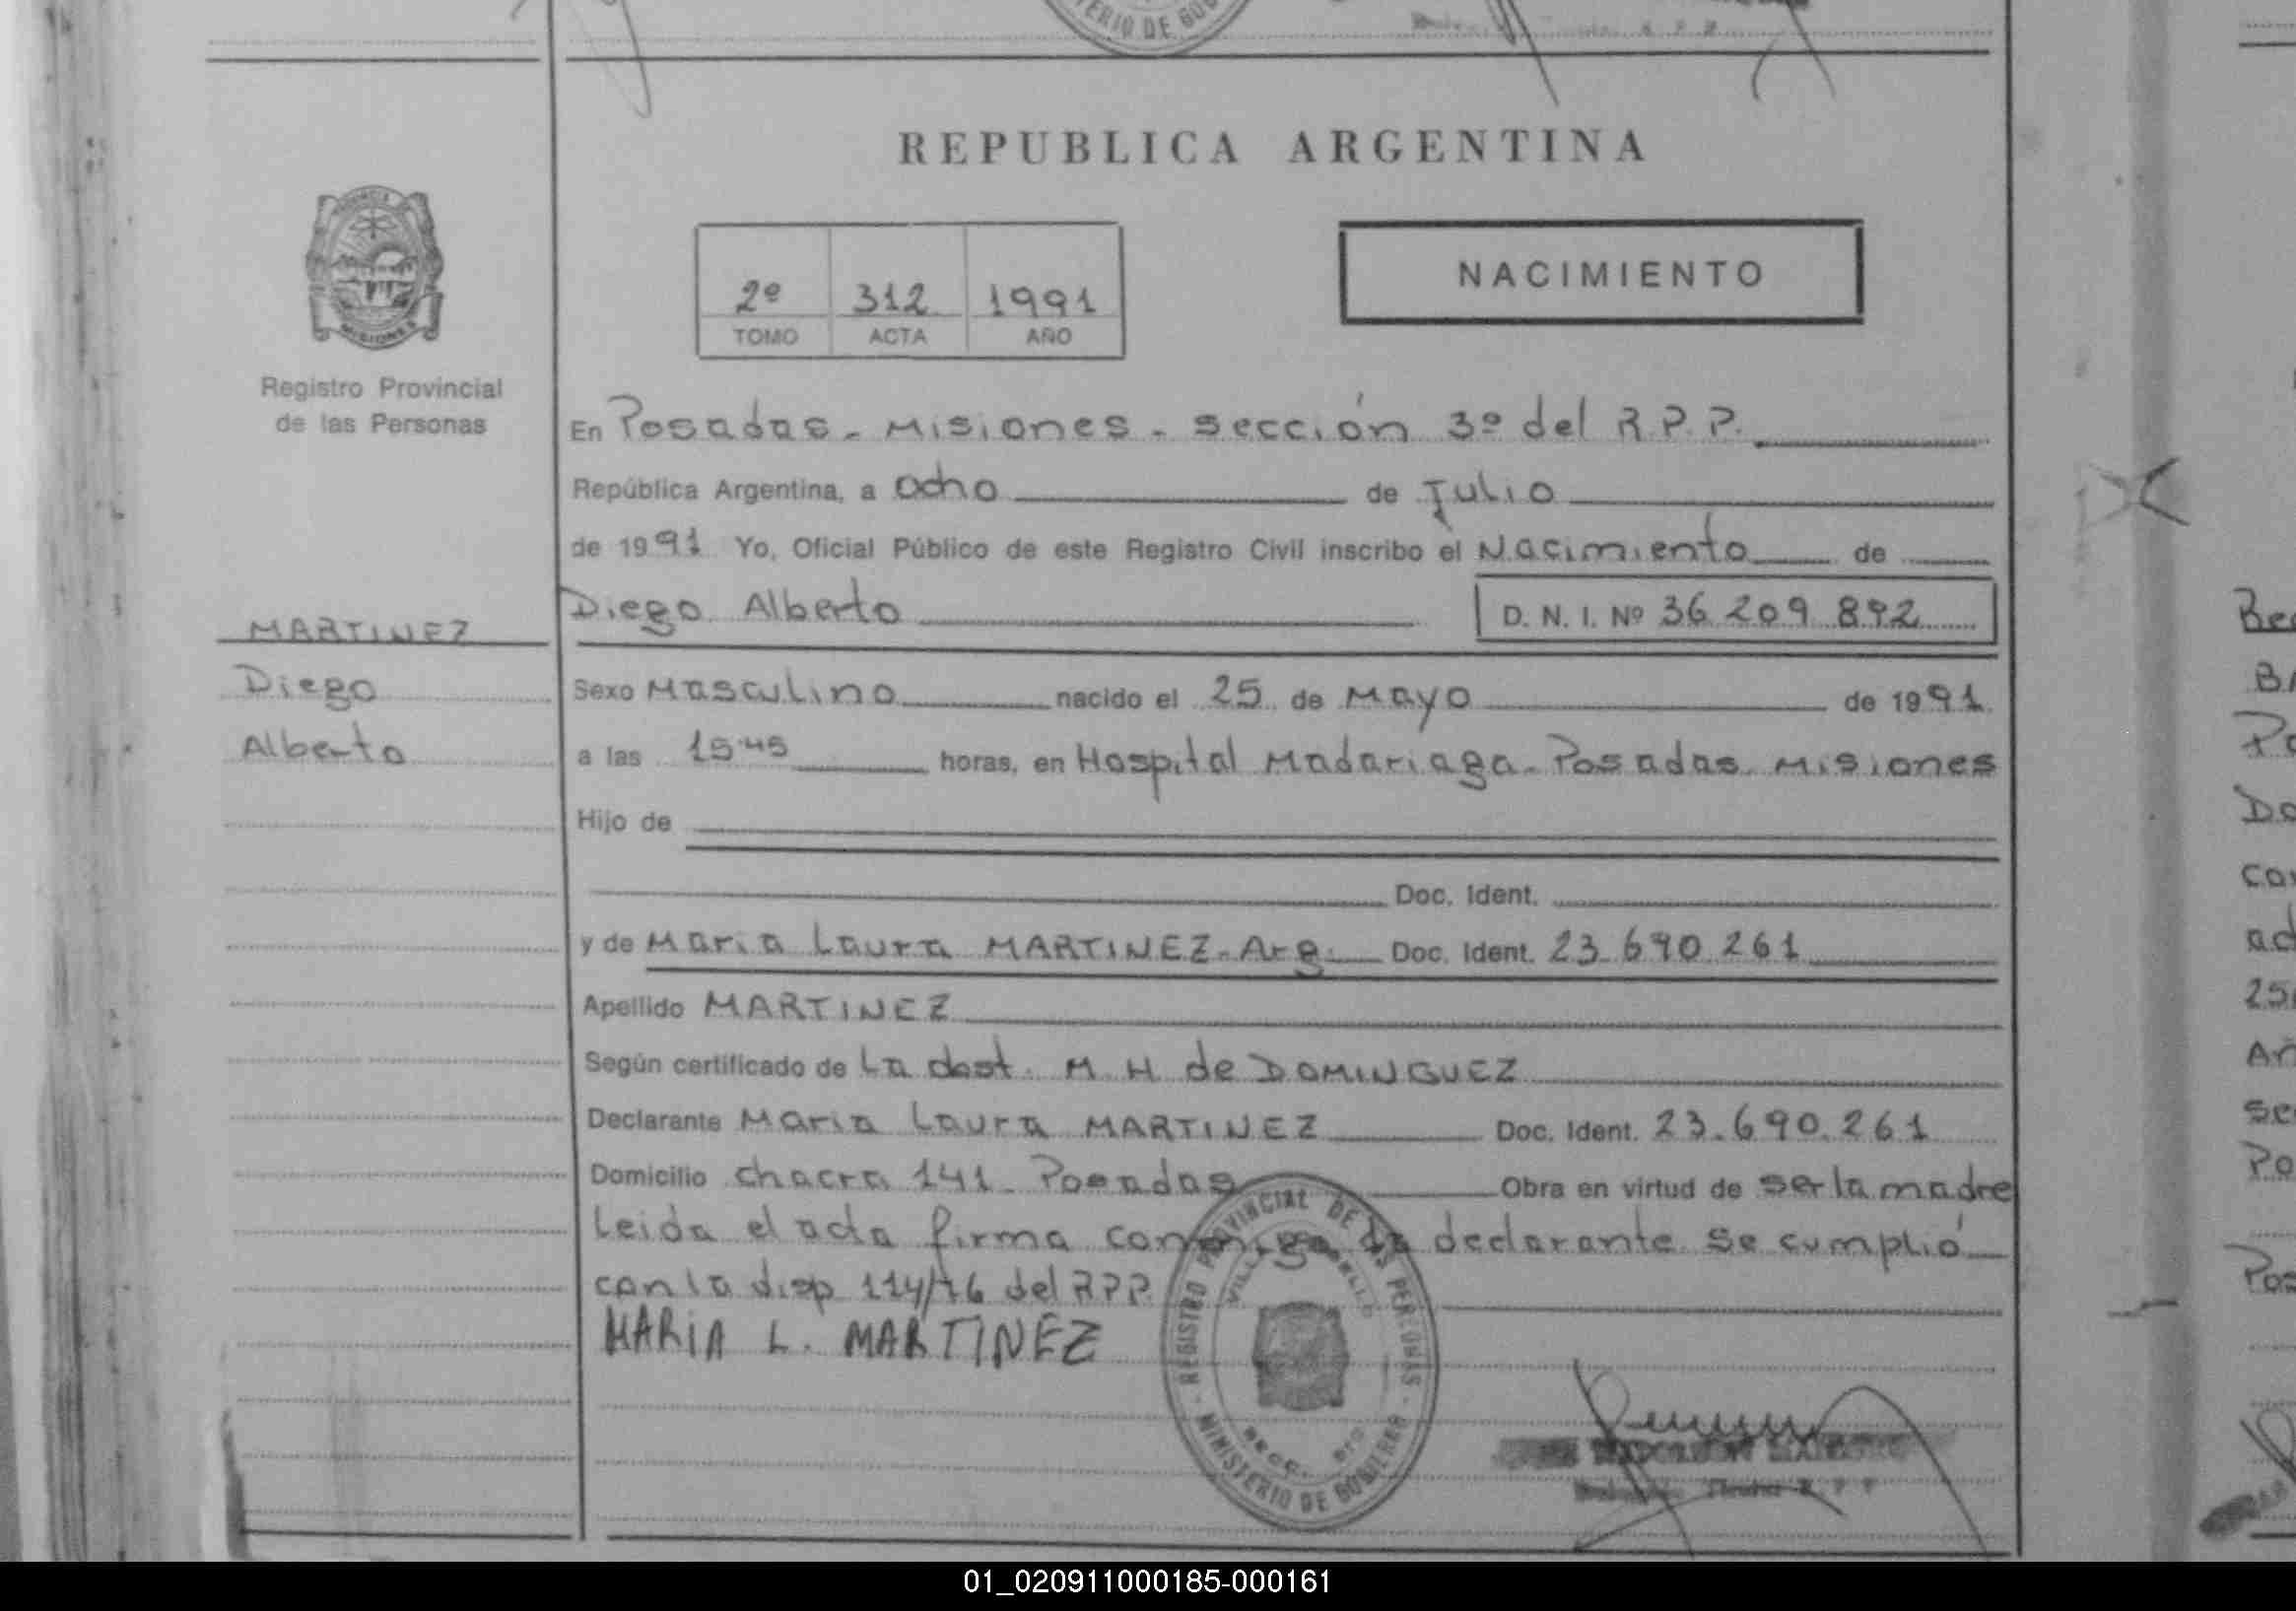 TERIO DE GOB
REPUBLICA ARGENTINA
2º 312 1991
TOMO ACTA AÑO
NACIMIENTO
PROVINCIA
MISIONES
Registro Provincial
de las Personas
En Posadas - Misiones - sección 3º del R.P.P.
República Argentina, a ocho de Julio
de 1991 Yo, Oficial Público de este Registro Civil inscribo el Nacimiento de
Diego Alberto D. N. I. Nº 36 209 892
MARTINEZ
Diego
Alberto
Sexo Masculino nacido el 25 de Mayo de 1991
a las 15:45 horas, en Hospital Madariaga - Posadas Misiones
Hijo de
Doc. Ident.
y de Maria Laura MARTINEZ - Arg. Doc. Ident. 23 690 261
Apellido MARTINEZ
Según certificado de La dost. M H de DOMINGUEZ
Declarante Maria Laura MARTINEZ Doc. Ident. 23.690.261
Domicilio chacra 141 - Posadas Obra en virtud de ser la madre
Leida el acta firma conmigo la declarante se cumplió
con la disp 114/76 del RPP.
MARIA L. MARTINEZ
REGISTRO PROVINCIAL DE LAS PERSONAS
MINISTERIO DE GOBIERNO
Bec
Po
Do
con
act
25
An
sec
Po
Pos
01_020911000185-000161